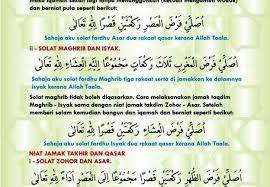 dan berniat pula seperti berikut:
أُصَلِّيْ فَرْضَ الْعَصْرِ رَكْعَتَيْنِ قَصْرًا لِلّٰهِ تَعَالَى
Sahaja aku solat fardhu Asar dua rakaat qasar kerana Allah Taala.
ii - SOLAT MAGHRIB DAN ISYAK.
أُصَلِّيْ فَرْضَ الْمَغْرِبِ ثَلَاثَ رَكَعَاتٍ مَجْمُوْعًا إِلَيْهِ الْعِشَاءُ لِلّٰهِ تَعَالَى
Sahaja aku solat fardhu Maghrib tiga rakaat serta di jamakkan ke dalamnya
isyak kerana Allah Taala.
Solat maghrib tidak boleh diqasarkan. Cara melaksanakan jamak taqdim
Maghrib - Isyak sama dengan niat jamak takdim Zohor - Asar. Setelah
memberi salam kemudian bangun dan iqamah dan berniat seperti berikut:
أُصَلِّيْ فَرْضَ الْعِشَاءِ رَكْعَتَيْنِ قَصْرًا لِلّٰهِ تَعَالَى
Sahaja aku solat fardhu Isyak dua rakaat qasar kerana Allah Taala.
NIAT JAMAK TAKHIR DAN QASAR
i - SOLAT ZOHOR DAN ASAR.
أُصَلِّيْ فَرْضَ الظُّهْرِ رَكْعَتَيْنِ قَصْرًا مَجْمُوْعًا إِلَى الْعَصْرِ أَدَاءً لِلّٰهِ تَعَالَى